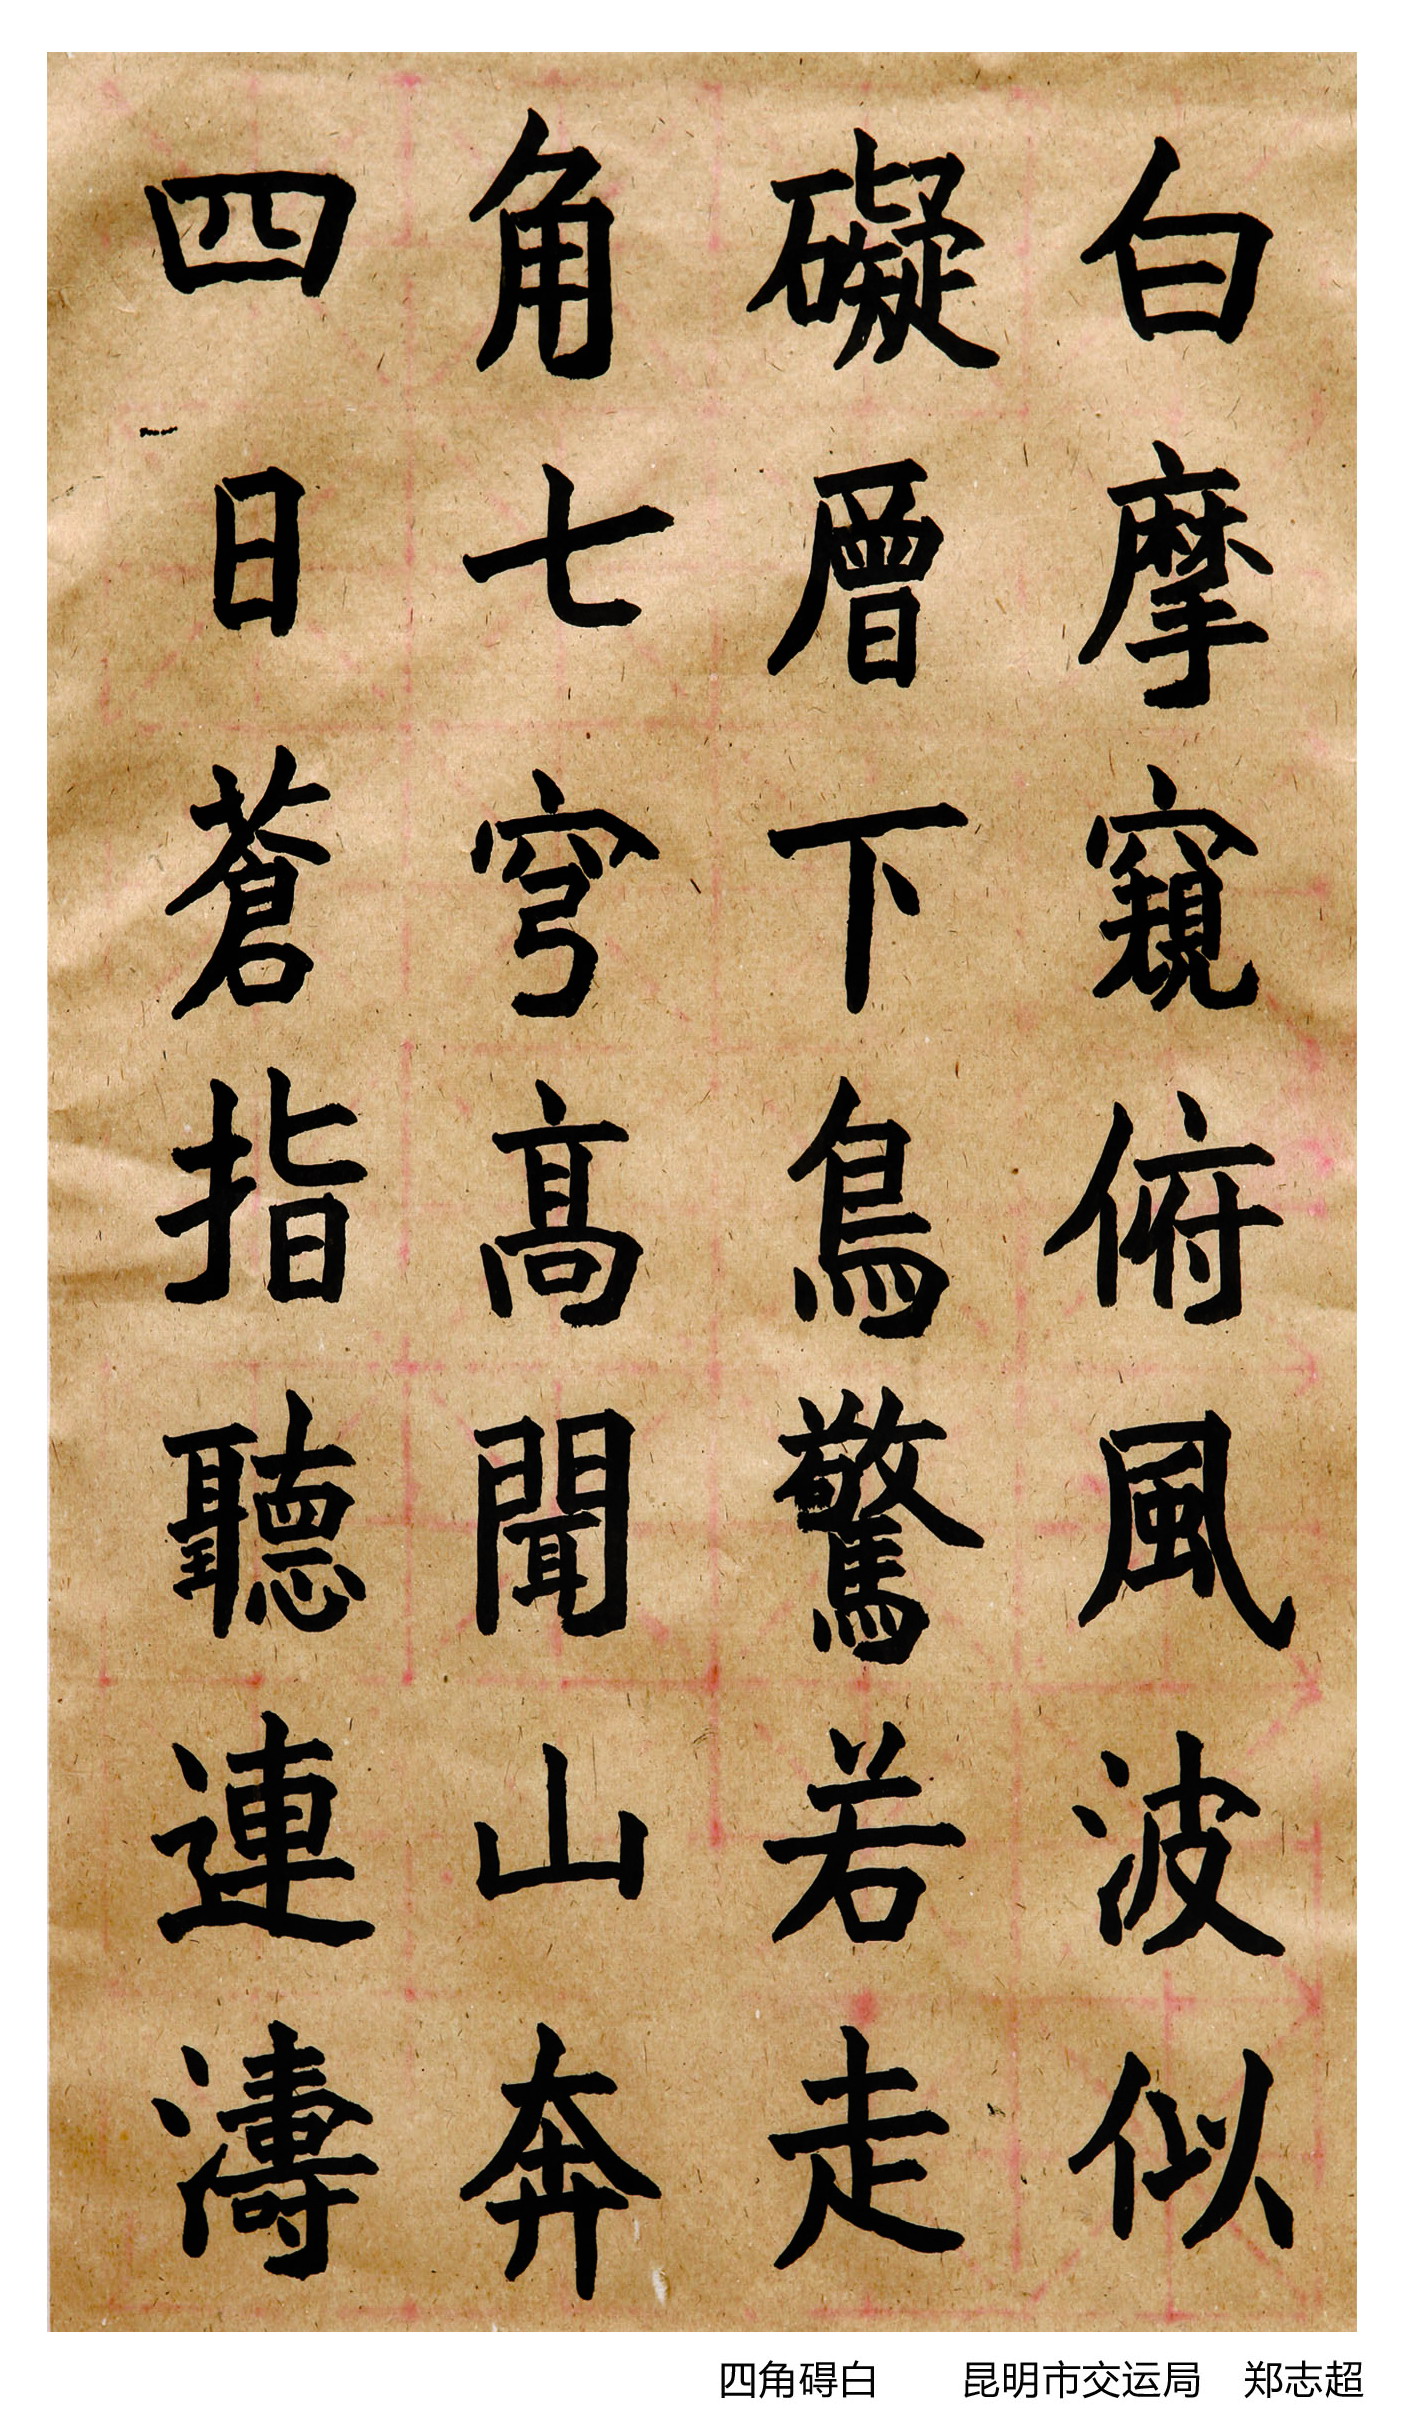 四角礙白
日七層摩
蒼穹下窺
指高鳥俯
聽聞驚風
連山若波
濤奔走似
四角碍白 昆明市交运局 郑志超